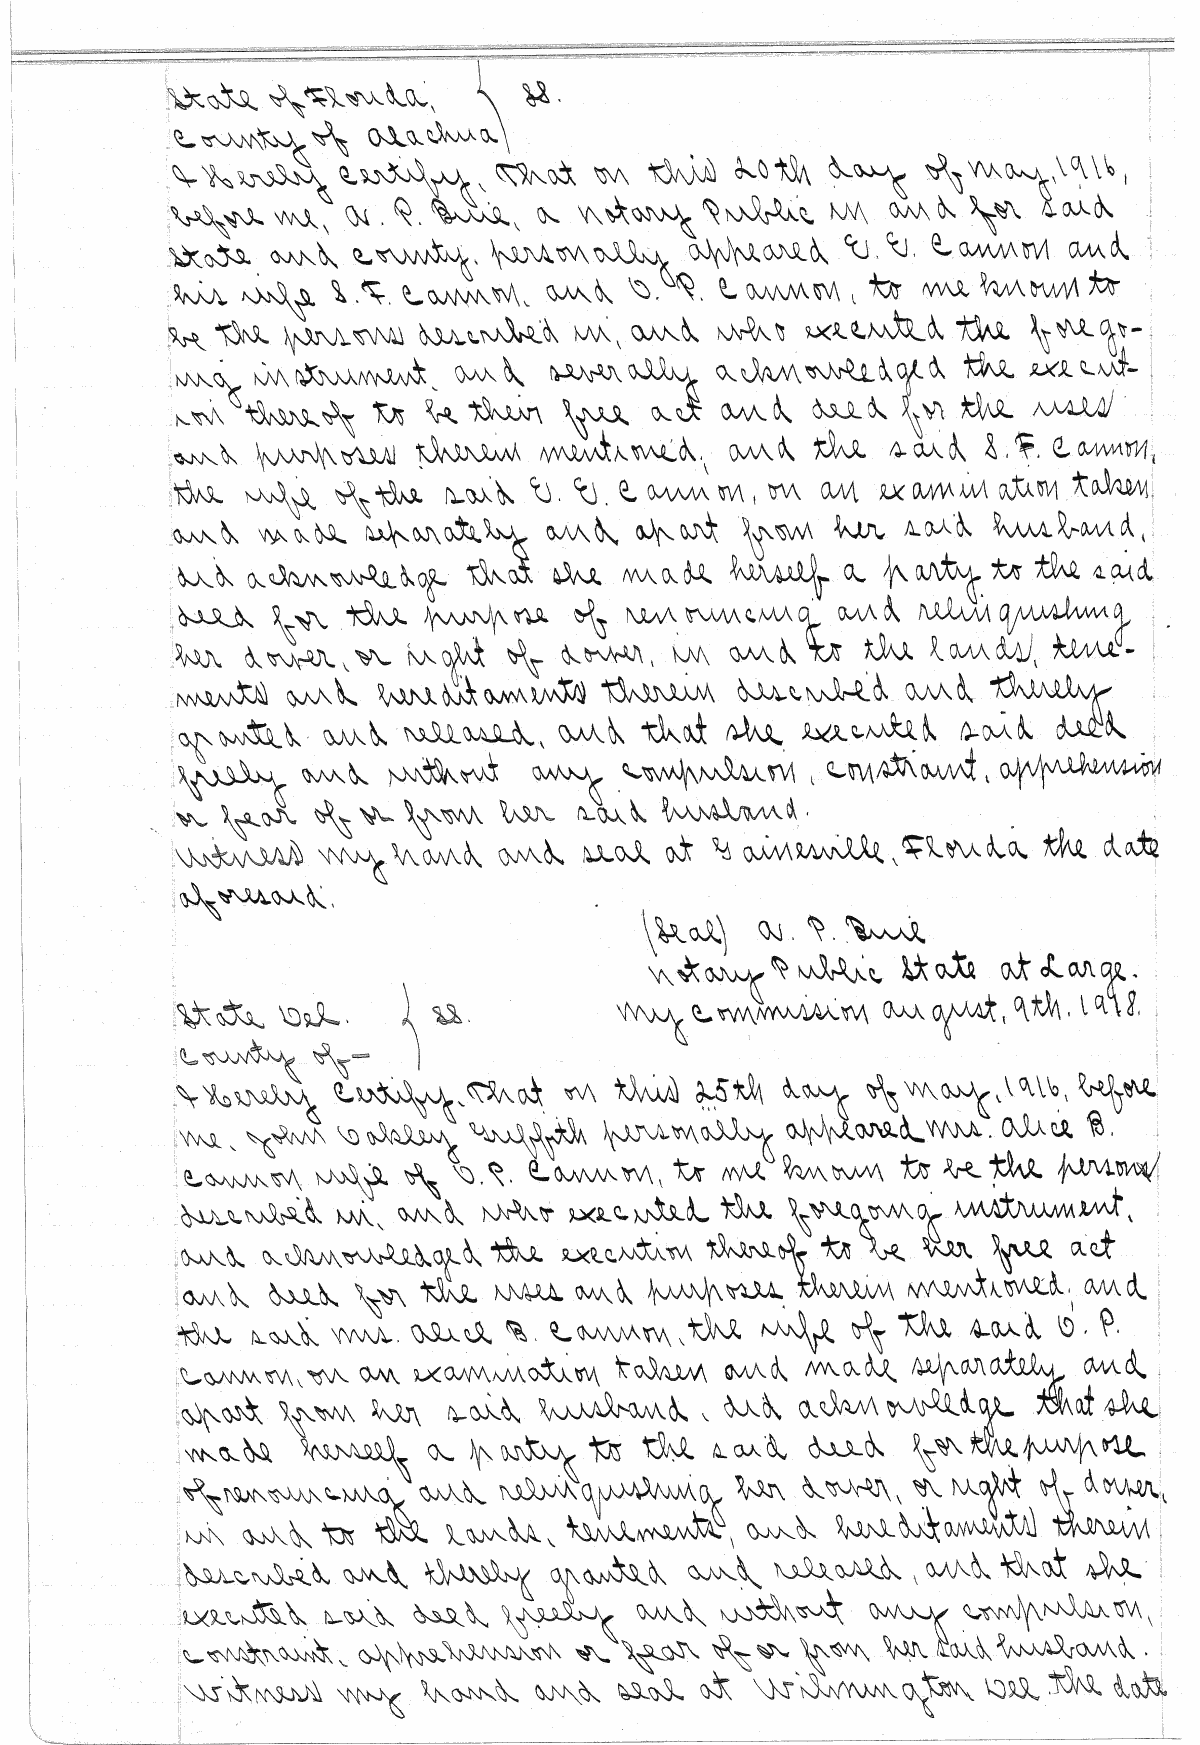 State of Florida, } SS.
County of Alachua
I Hereby Certify, That on this 20th day of May, 1916,
before me, A. P. Buie, a Notary Public in and for said
State and County, personally appeared E. E. Cannon and
his wife S. F. Cannon, and O. P. Cannon, to me known to
be the persons described in, and who executed the forego-
ing instrument, and severally acknowledged the execut-
ion thereof to be their free act and deed for the uses
and purposes therein mentioned; and the said S. F. Cannon,
the wife of the said E. E. Cannon, on an examination taken
and made separately and apart from her said husband,
did acknowledge that she made herself a party to the said
deed for the purpose of renouncing and relinquishing
her dower, or right of dower, in and to the lands, tene-
ments and hereditaments therein described and thereby
granted and released, and that she executed said deed
freely and without any compulsion, constraint, apprehension
or fear of or from her said husband.
Witness my hand and seal at Gainesville, Florida the date
aforesaid.
(Seal) A. P. Buie
Notary Public State at Large.
My Commission August, 9th. 1918.
State Del. } SS.
County of-
I Hereby Certify, That on this 25th day of May, 1916, before
me, John Oakley Griffith personally appeared Mrs. Alice B.
Cannon wife of O. P. Cannon, to me known to be the persons
described in, and who executed the foregoing instrument,
and acknowledged the execution thereof to be her free act
and deed for the uses and purposes therein mentioned; and
the said Mrs. Alice B. Cannon, the wife of the said O. P.
Cannon, on an examination taken and made separately and
apart from her said husband, did acknowledge that she
made herself a party to the said deed for the purpose
of renouncing and relinquishing her dower, or right of dower,
in and to the lands, tenements, and hereditaments therein
described and thereby granted and released, and that she
executed said deed freely and without any compulsion,
constraint, apprehension or fear of or from her said husband.
Witness my hand and seal at Wilmington Del the date